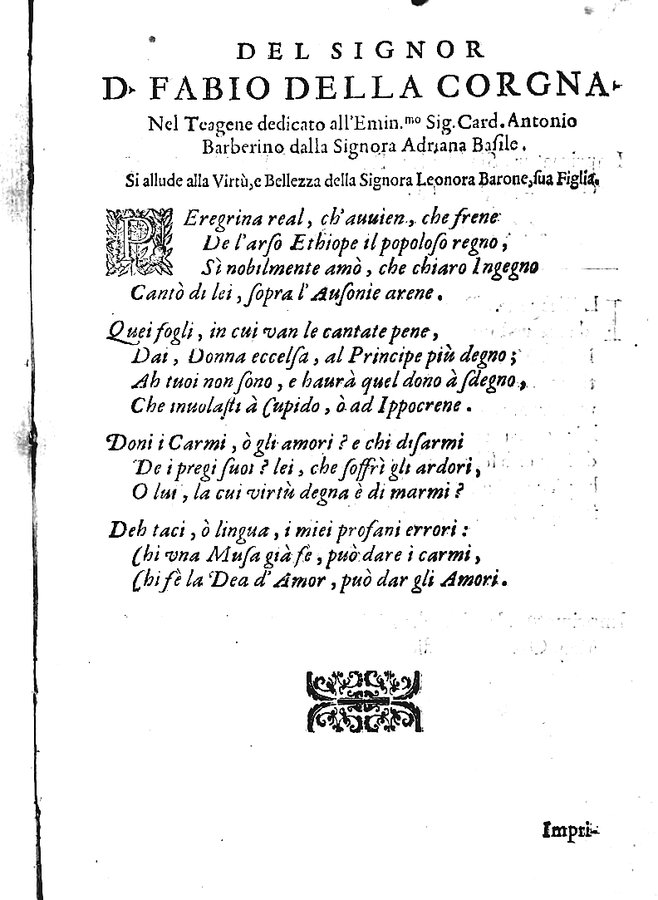 DEL SIGNOR
D. FABIO DELLA CORGNA.
Nel Teagene dedicato all'Emin.mo Sig. Card. Antonio
Barberino dalla Signora Adriana Basile.
Si allude alla Virtù, e Bellezza della Signora Leonora Barone, sua Figlia.
PEregrina real, ch'auuien, che frene
De l'arso Ethiope il populoso regno,
Sì nobilmente amò, che chiaro Ingegno
Cantò di lei, sopra l'Ausonie arene.
Quei fogli, in cui van le cantate pene,
Dai, Donna eccelsa, al Principe più degno;
Ah tuoi non sono, e haurà quel dono à sdegno,
Che inuolasti à Cupido, ò ad Ippocrene.
Doni i Carmi, ò gli amori? e chi disarmi
De i pregi suoi? lei, che soffrì gli ardori,
O lui, la cui virtù degna è di marmi?
Deh taci, ò lingua, i miei profani errori:
Chi vna Musa già fè, può dare i carmi,
Chi fè la Dea d'Amor, può dar gli Amori.
Impri-